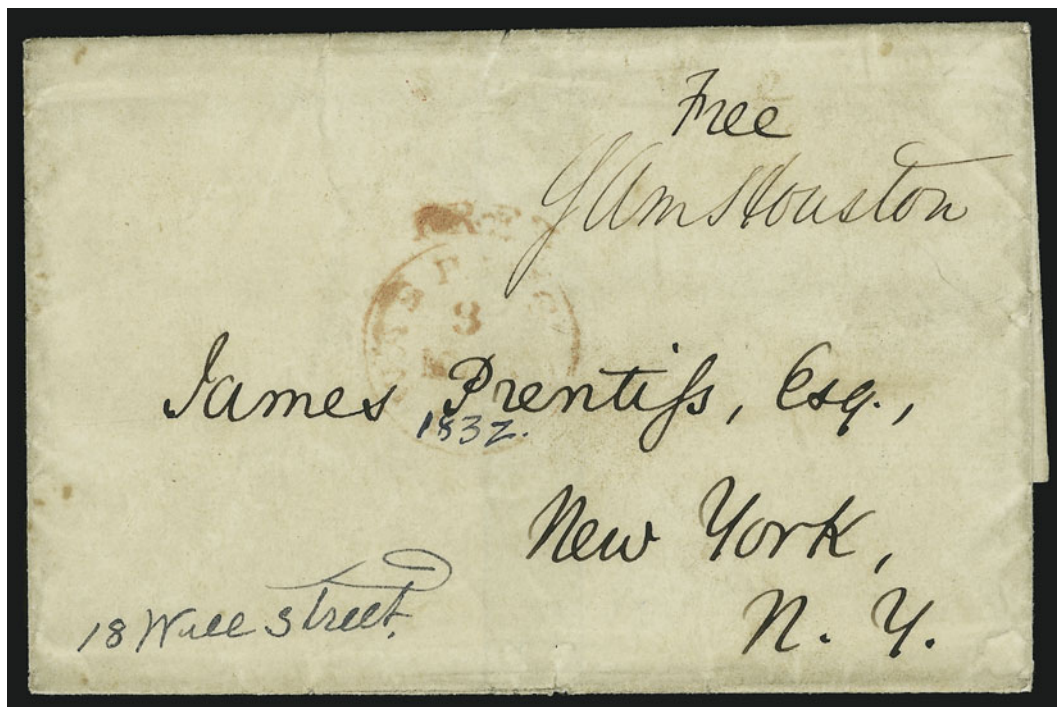 Free
Sam Houston
FREE
8
James Prentiſs, Esq.,
1832.
New York,
N. Y.
18 Wall Street.